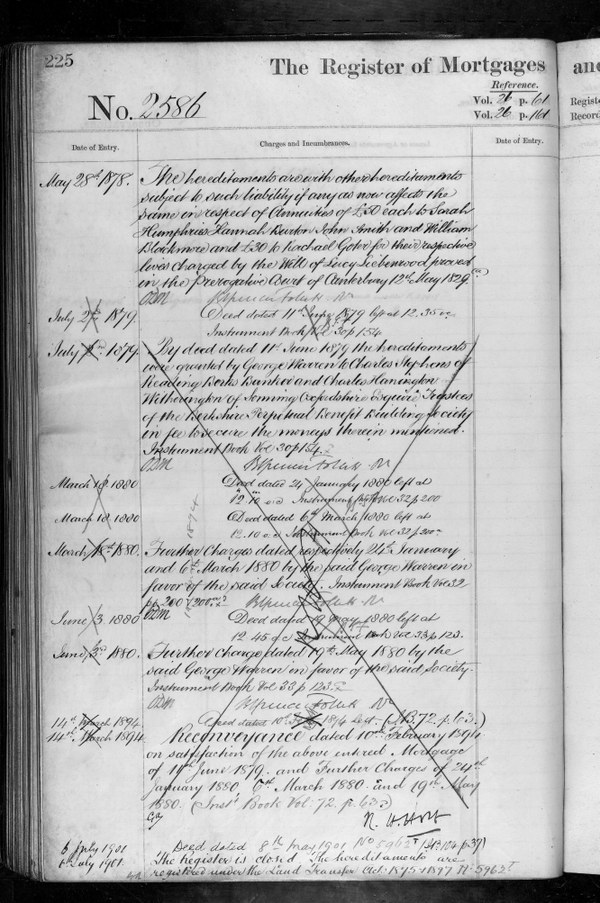 225
The Register of Mortgages
and
Reference.
No. 2586
Vol. 26 p. 61
Vol. 26 p. 161
Registe
Record
Date of Entry.
Charges and Incumbrances.
Date of Entry.
May 28th 1878.
The hereditaments are with other hereditaments
subject to such liability if any as now affects the
same in respect of Annuities of £50 each to Sarah
Humphries Hannah Burton John Smith and William
Blackmore and £30 to Rachael for their respective
lives charged by the Will of Lucy proved
in the Prerogative Court of Canterbury 12th May 1829.
July 2nd 1879
Deed dated 11th June 1879 left at 12.35
Instrument Book Vol 30 p 154
July 2nd 1879.
By deed dated 11th June 1879 the hereditaments
were granted by George Warren to Charles Stephens of
Reading Berks Banker and Charles Hanington
Witherington of Sonning Oxfordshire Esquire Trustees
of the Berkshire Perpetual Benefit Building Society
in fee to secure the moneys therein mentioned.
Instrument Book Vol 30 p 154.
March 18 1880
Deed dated 24 January 1880 left at
12.10 Instrument Book Vol 32 p 200
March 18 1880
Deed dated 6th March 1880 left at
12.10 Instrument Book Vol 32 p 200
March 18th 1880.
Further Charges dated respectively 24th January
and 6th March 1880 by the said George Warren in
favor of the said Society. Instrument Book Vol 32
pp 200
June 3 1880
Deed dated 19 May 1880 left at
12.45 Instrument Book Vol 33 p 123.
June 3rd 1880.
Further Charge dated 19th May 1880 by the
said George Warren in favor of the said Society
Instrument Book Vol 33 p 123.
14th March 1894.
Deed dated 10 1894 Left. (N.B. 72. p. 63.)
14th March 1894.
Reconveyance dated 10th February 1894
on satisfaction of the above entered Mortgage
of 11th June 1879. and Further Charges of 24th
January 1880, 6th March 1880 and 19th May
1880. (Inst. Book Vol. 72. p. 63.)
5 July 1901
Deed dated 8th May 1901 No 5962
6th July 1901
The Register is closed The hereditaments are
registered under the Land Transfer Acts 1875 & 1897 No 5962